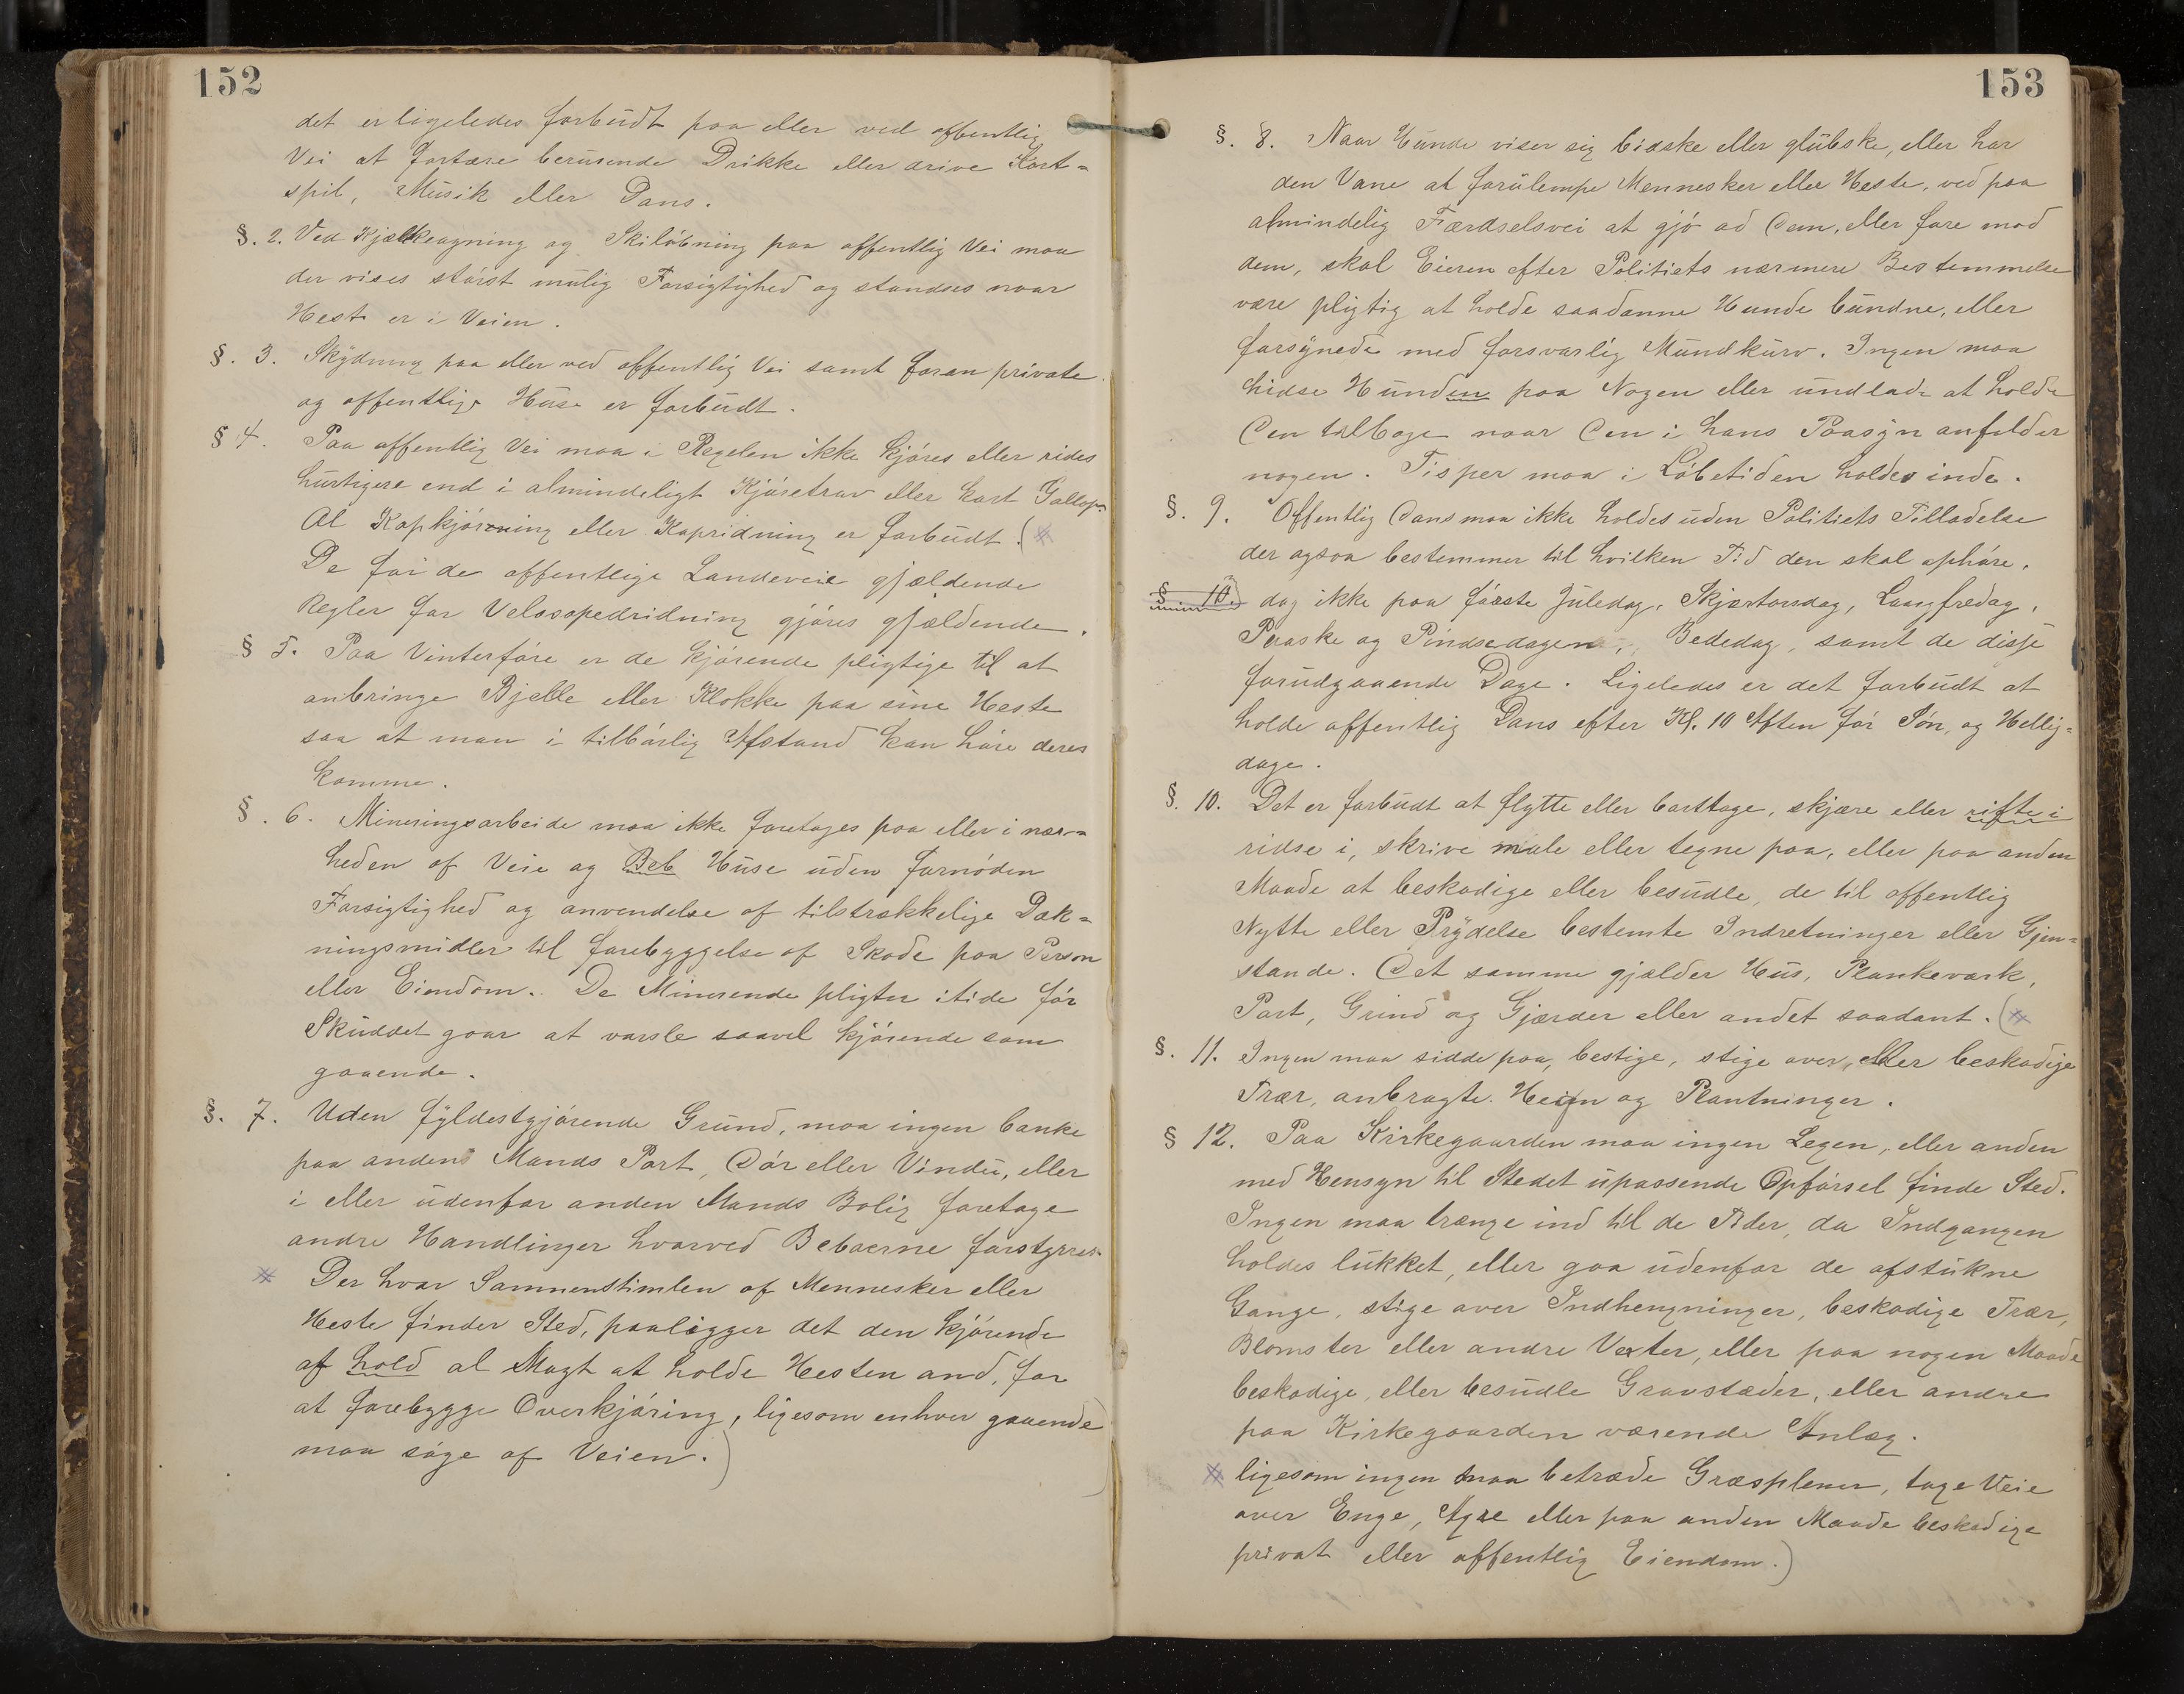 152
det er ligeledes forbudt paa eller ved offentlig
Vei at fortære berusende Drikke eller drive Kort=
spil, Musik eller Dans.
§. 2. Ved Kjælkeagning og Skiløbning paa offentlig Vei maa
der vises størst mulig Forsigtighed og standses naar
Hest er i Veien.
§. 3. Skydning paa eller ved offentlig Vei samt foran private
og offentlige Huse er forbudt.
§ 4. Paa offentlig Vei maa i Regelen ikke kjøres eller rides
hurtigere end i almindeligt Kjøretrav eller kort Gallop.
Al Kapkjørening eller Kapridning er forbudt. (*
De for de offentlige Landeveie gjældende
Regler for Velosopedridning gjøres gjældende.
§ 5. Paa Vinterføre er de kjørende pligtige til at
anbringe Bjelle eller Klokke paa sine Heste
saa at man i tilbørlig Afstand kan høre deres
komme.
§. 6. Mineringsarbeide maa ikke foretages paa eller i nær=
heden af Veie og Beb Huse uden fornøden
Forsigtighed og anvendelse af tilstrækkelige Dæk=
ningsmidler til forebyggelse af Skade paa Person
eller Eiendom. De Minerende pligter itide før
Skuddet gaar at varsle saavel kjørende som
gaaende.
§. 7. Uden fyldestgjørende Grund, maa ingen banke
paa anden Mands Port, Dør eller Vindu, eller
i eller udenfor anden Mands Bolig foretage
andre Handlinger hvorved Beboerne forstyrres.
* Der hvor Sammenstimlen af Mennesker eller
Heste finder Sted, paaligger det den kjørende
af hold al Magt at holde Hesten and, for
at forebygge Overkjøring, ligesom enhver gaaende
maa søge af Veien.)
153
§. 8. Naar Hunde viser sig bidske eller glubske, eller har
den Vane at forulempe Mennesker eller Heste, ved paa
almindelig Færdselsvei at gjø ad dem, eller fare mod
dem, skal Eieren efter Politiets nærmere Bestemmelse
være pligtig at holde saadanne Hunde bundne, eller
forsynede med forsvarlig Mundkurv. Ingen maa
hidse Hunden paa Nogen eller undlade at holde
den tilbage naar den i hans Paasyn anfalder
nogen. Tisper maa i Løbetiden holdes inde.
§. 9. Offentlig Dans maa ikke holdes uden Politiets Tilladelse
der ogsaa bestemmer til hvilken Tid den skal ophøre,
§ 10 dog ikke paa første Juledag, Skjærtorsdag, Langfredag,
Paaske og Pindsedagen, Bededag, samt de disse
forudgaaende Dage. Ligeledes er det forbudt at
holde offentlig Dans efter Kl. 10 Aften før Søn, og Hellig=
dage.
§. 10. Det er forbudt at flytte eller borttage, skjære eller rifte i
ridse i, skrive male eller tegne paa, eller paa anden
Maade at beskadige eller besudle, de til offentlig
Nytte eller Prydelse bestemte Indretninger eller Gjen=
stande. Det samme gjælder Hus, Plankeværk,
Port, Grind og Gjærder eller andet saadant. (*
§. 11. Ingen maa sidde paa, bestige, stige over, eller beskadige
Trær, anbragte. Hegn og Plantninger.
§ 12. Paa Kirkegaarden maa ingen Legen, eller anden
med Hensyn til Stedet upassende Opførsel finde Sted.
Ingen maa trænge ind til de Tider, da Indgangen
holdes lukket, eller gaa udenfor de afstukne
Gange, stige over Indhengninger, beskadige Trær,
Blomster eller andre Vexter, eller paa nogen Maade
beskadige, eller besudle Gravstæder, eller andre
paa Kirkegaarden værende Anlæg.
* ligesom ingen maa betræde Græsplener, tage Veie
over Enge, Agre eller paa anden Maade beskadige
privat eller offentlig Eiendom.)